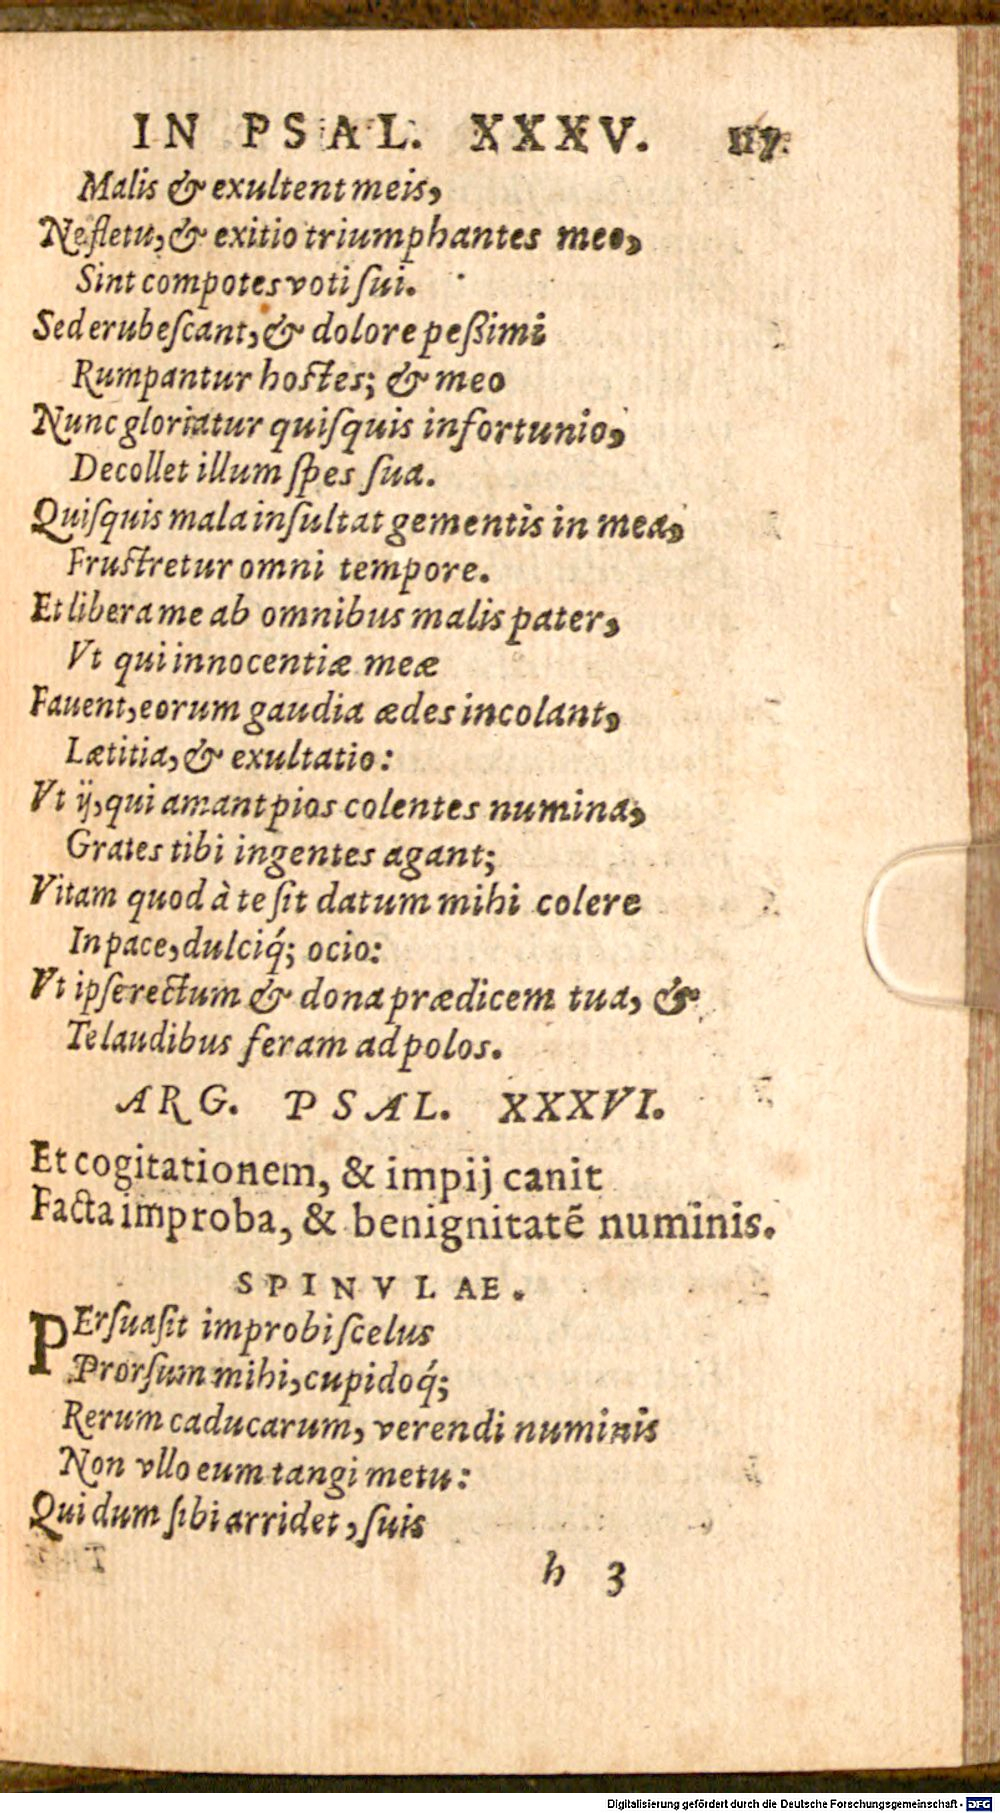 IN PSAL. XXXV. 117.
Malis & exultent meis,
Ne fletu, & exitio triumphantes meo,
Sint compotes voti ſui.
Sed erubeſcant, & dolore peßimi
Rumpantur hoſtes; & meo
Nunc gloriatur quiſquis infortunio,
Decollet illum ſpes ſua.
Quiſquis mala inſultat gementis in mea,
Fruſtretur omni tempore.
Et libera me ab omnibus malis pater,
Vt qui innocentiæ meæ
Fauent, eorum gaudia ædes incolant,
Lætitia, & exultatio:
Vt ij, qui amant pios colentes numina,
Grates tibi ingentes agant;
Vitam quod à te ſit datum mihi colere
In pace, dulciq́; ocio:
Vt ipſe rectum & dona prædicem tua, &
Te laudibus feram ad polos.
ARG. PSAL. XXXVI.
Et cogitationem, & impij canit
Facta improba, & benignitatē numinis.
SPINVLAE.
PErſuaſit improbi ſcelus
Prorſum mihi, cupidoq́;
Rerum caducarum, verendi numinis
Non vllo eum tangi metu:
Qui dum ſibi arridet, ſuis
h 3
Digitalisierung gefördert durch die Deutsche Forschungsgemeinschaft - DFG